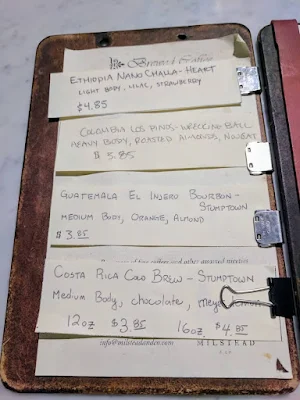 Brewed Coffee
ETHIOPIA NANO CHALLA - HEART
LIGHT BODY, LILAC, STRAWBERRY
$4.85
COLOMBIA LOS PINOS - WRECKING BALL
HEAVY BODY, ROASTED ALMONDS, NOUGAT
$ 5.85
GUATEMALA EL INJERO BOURBON -
STUMPTOWN
MEDIUM BODY, ORANGE, ALMOND
$3.85
COSTA RICA COLD BREW - STUMPTOWN
Medium Body, chocolate, meyer
12oz $3.85 16oz, $4.85
info@milsteadandco.com
MILSTEAD
&CO.